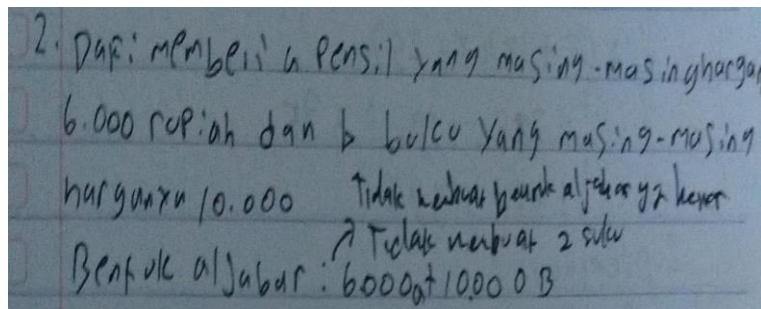 2. Dafi membeli a pensil yang masing-masing harga
6.000 rupiah dan b buku yang masing-masing
harganya 10.000 Tidak membuat bentuk aljabar yg benar
Tidak membuat 2 suku
Bentuk aljabar : 6000a+10.000B